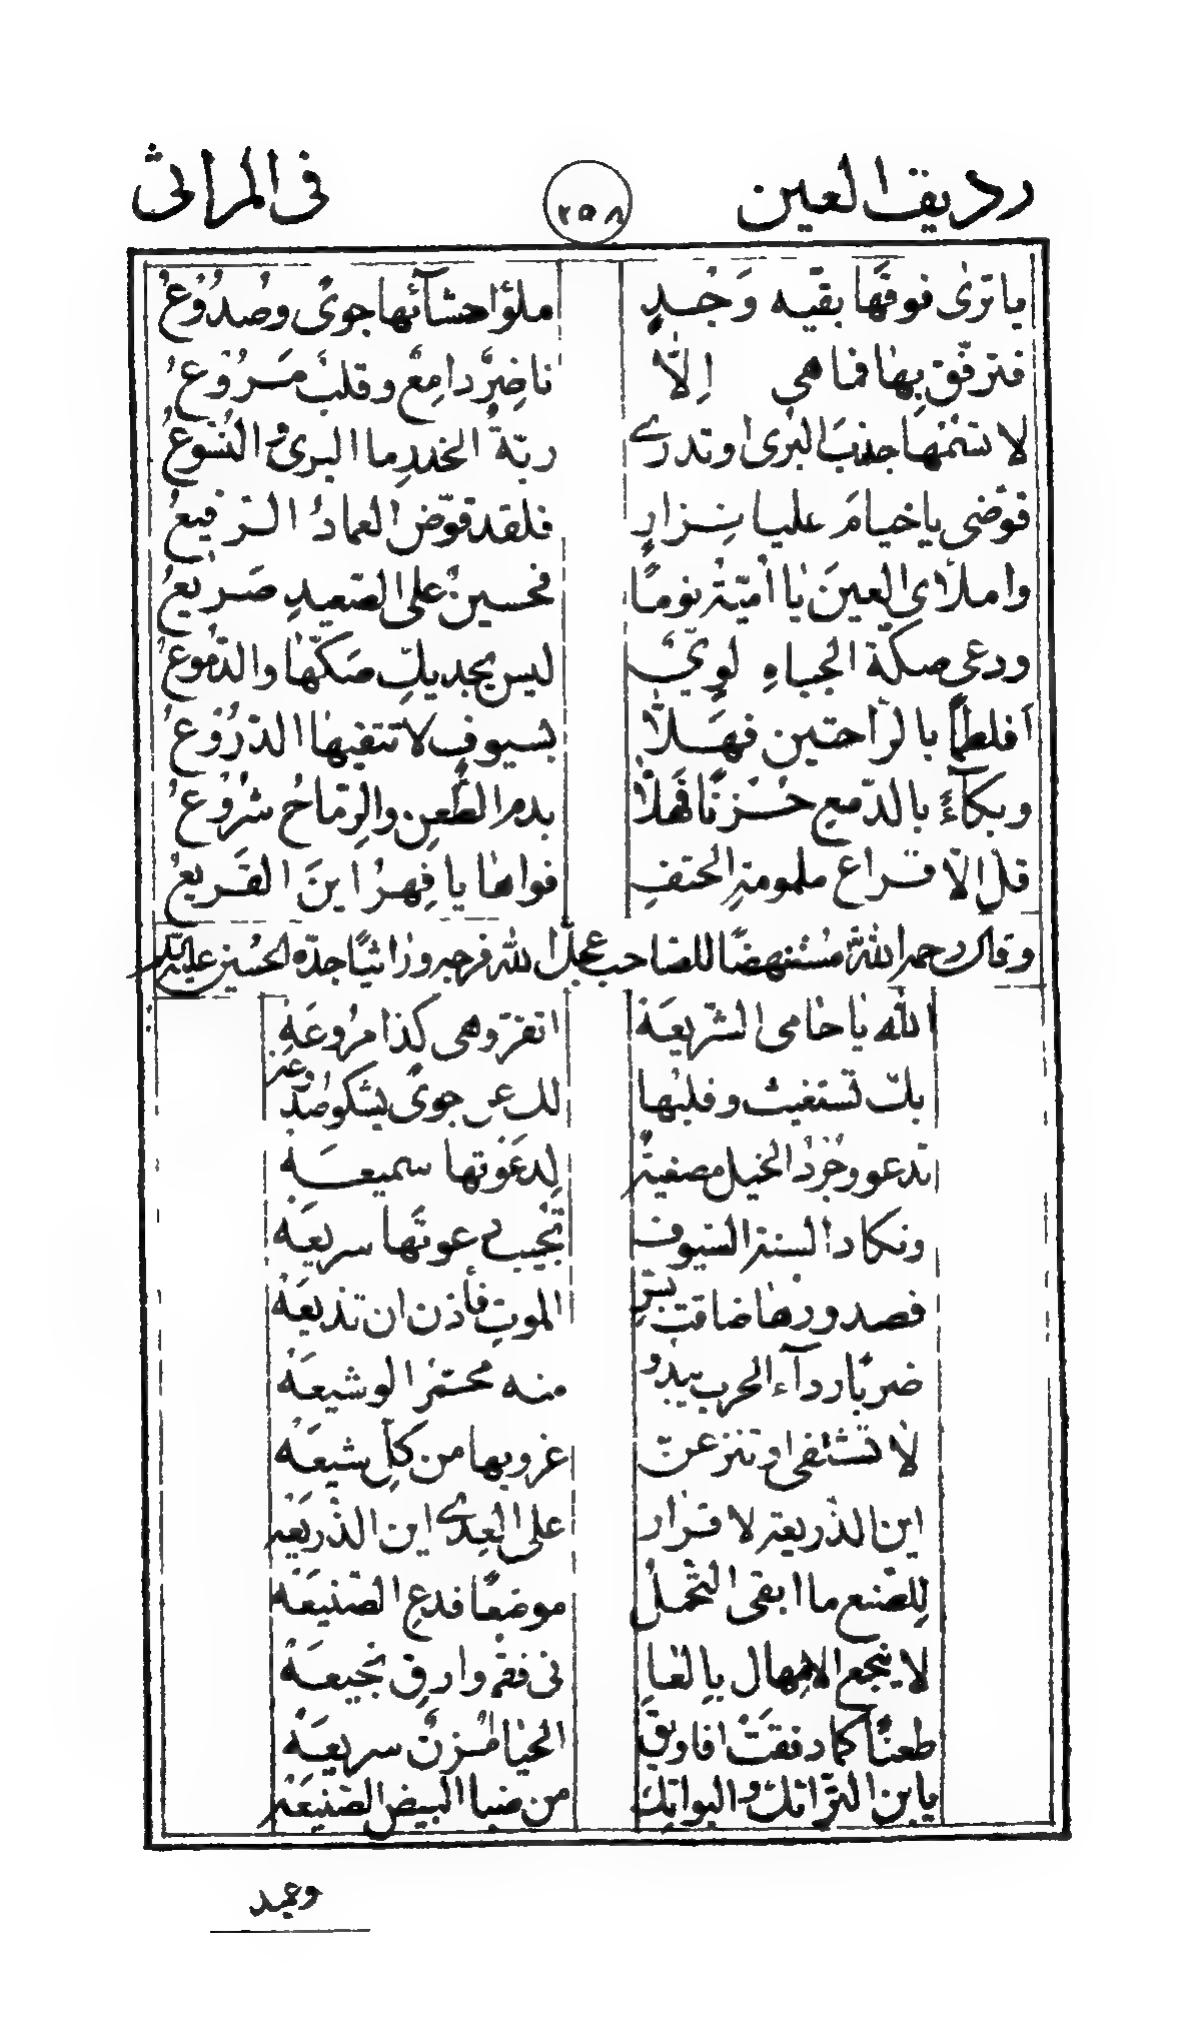 رديف العين ٢٥٨ في المراثي
ما ترى نوقها بقيه وجدٍ ملؤا حشآئها جوىً وصدُوعُ
فترفّق بها فما هي اِلّا ناضرٌ دامعٌ وقلبٌ مَروُعُ
لا تسُمْها جذبَ البُرى او تدرے ربّةُ الخدرِ ما البرىٰ والنسُوعُ
قوّضى يا خيامَ عليا نِزارٍ فلقد قوّض العمادُ الرّفيعُ
واملأى العينَ يا اُميّة نومًا فحسينٌ على الصّعيدِ صَريعُ
ودعى صكّة الجباهِ لوىٌّ ليس يجديكِ صَكّها والدّموعُ
اَفلطمًا بالرّاحتين فهَلّا بسيوفٍ لا تتقيها الدّرُوعُ
وبكآءً بالدّمع حُزنًا فهلّا بدم الطّعنِ والرّماحُ شرُوعُ
قل الّا قراع ملمومة الحتفِ فواهًا يا فِهرُ اينَ القَريعُ
وقال رحمه الله مُستنهضًا للصّاحب عجل الله فرجه وراثيًا جدّه الحسُين عليه السلام
الله يا حامى الشّريعَة اتقرّ وهى كذا مرُوعَة
بك تستغيث وقلبُها لك عن جوىً يشكو صدُوعَه
تدعو وجُردُ الخيل مصغيةٌ لِدعَوتها سميعَة
وتكاد السنة السّيوف تُجيب دعوتَها سريعَة
فصدورها ضاقت بسّرِ الموتِ فأذن ان تذيعَهْ
ضربًا رداآء الحرب يبدُو منه محمّر الوشيعَهْ
لا تشتفى او تنزعنّ غروبها من كلّ شيعَهْ
اين الذّريعة لا قرار على العِدے اين الذّريعَه
لا ينجع الامهال بالعا تى فقم وارق نجيعَهْ
للصّنع ما ابقى التّحمّل موضعًا فدع الصّنيعَه
طعنًا كما دفقَتْ افاويقَ الحيا مُزنٌ سريعَهْ
يا بن التّرائك والبواتك من ضبا البيض الصّنيعَة
وعميد